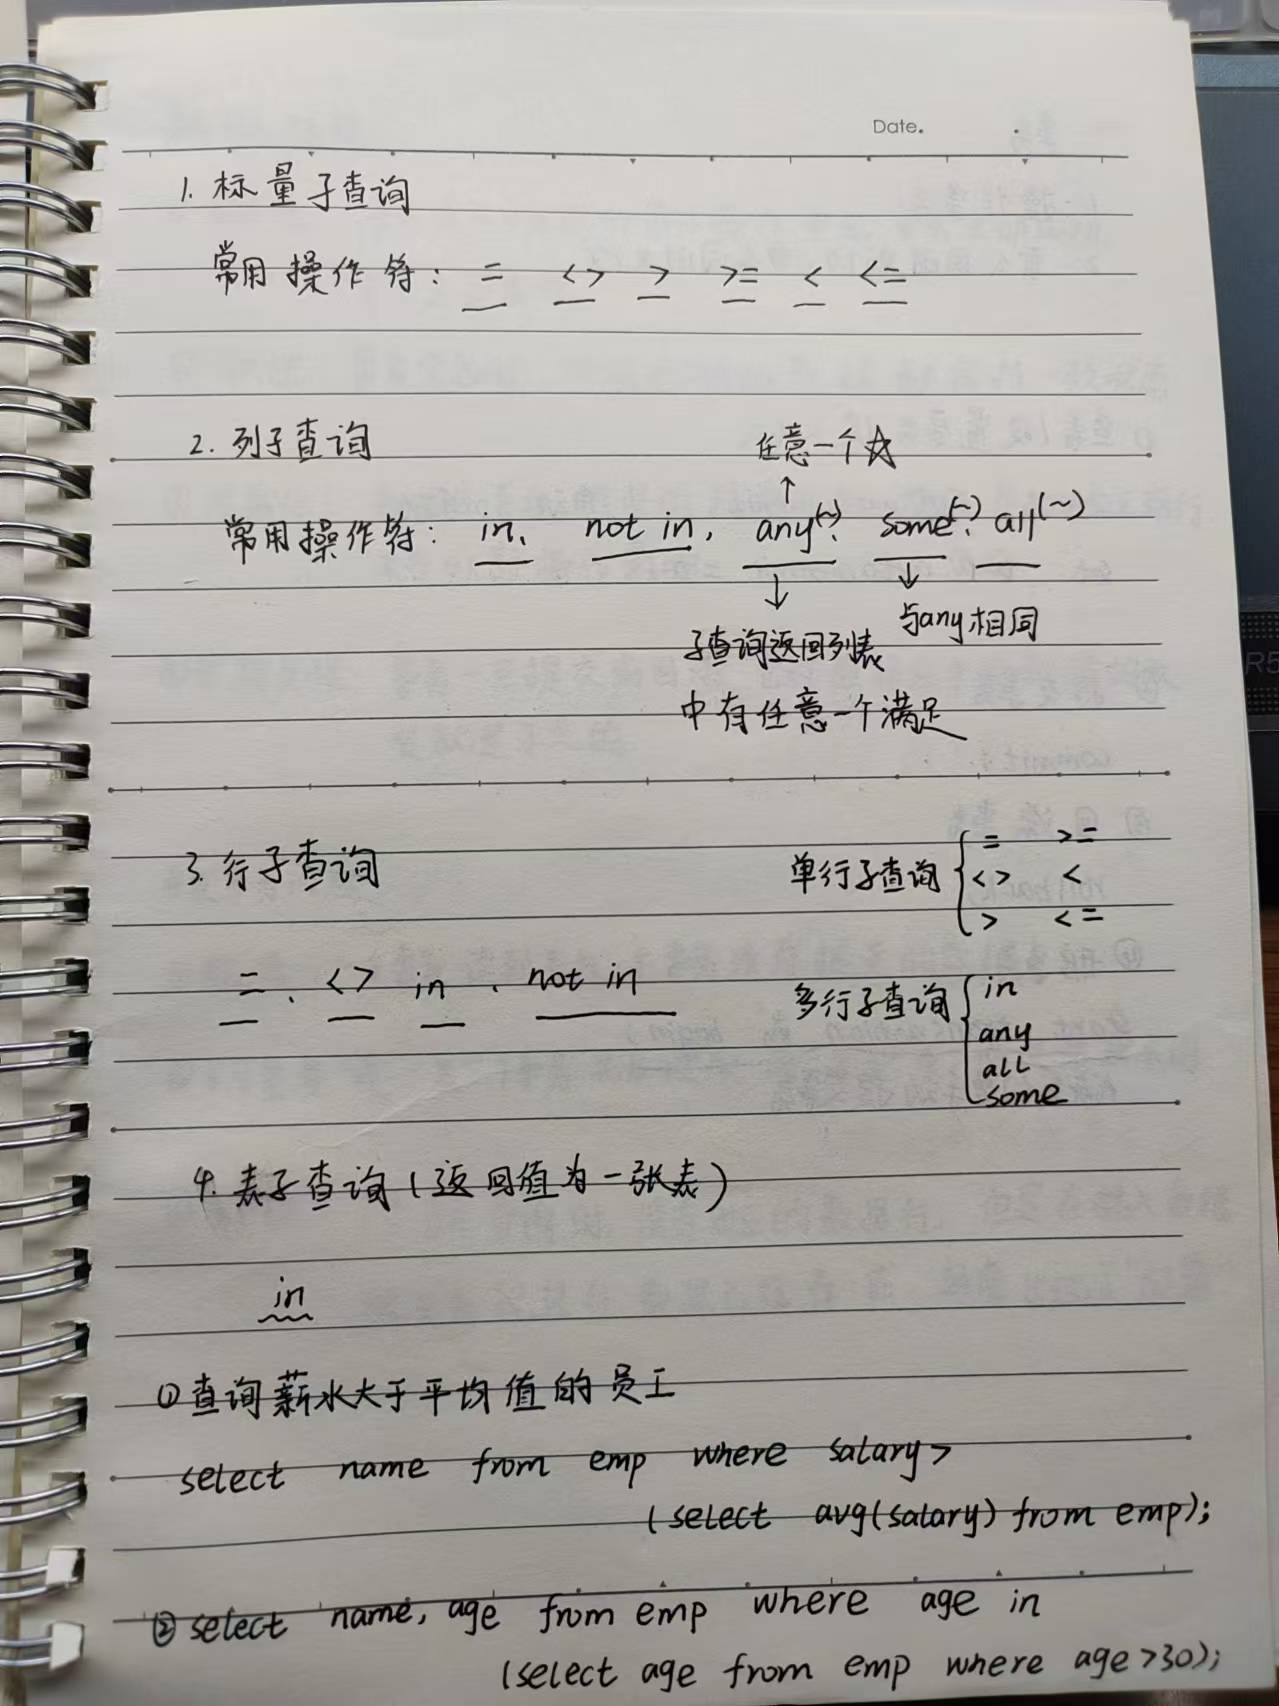 Date.
1. 标量子查询
常用操作符: = <> > >= < <=
2. 列子查询
任意一个
↑
常用操作符: in、 not in, any(~)、 some(~)、 all(~)
↓ ↓
与any相同
子查询返回列表
中有任意一个满足
3. 行子查询
单行子查询 { = >=
<> <
> <=
= 、 <> in 、 not in
多行子查询 { in
any
all
some
4. 表子查询(返回值为一张表)
in
① 查询薪水大于平均值的员工
select name from emp where salary>
(select avg(salary) from emp);
② select name, age from emp where age in
(select age from emp where age>30);